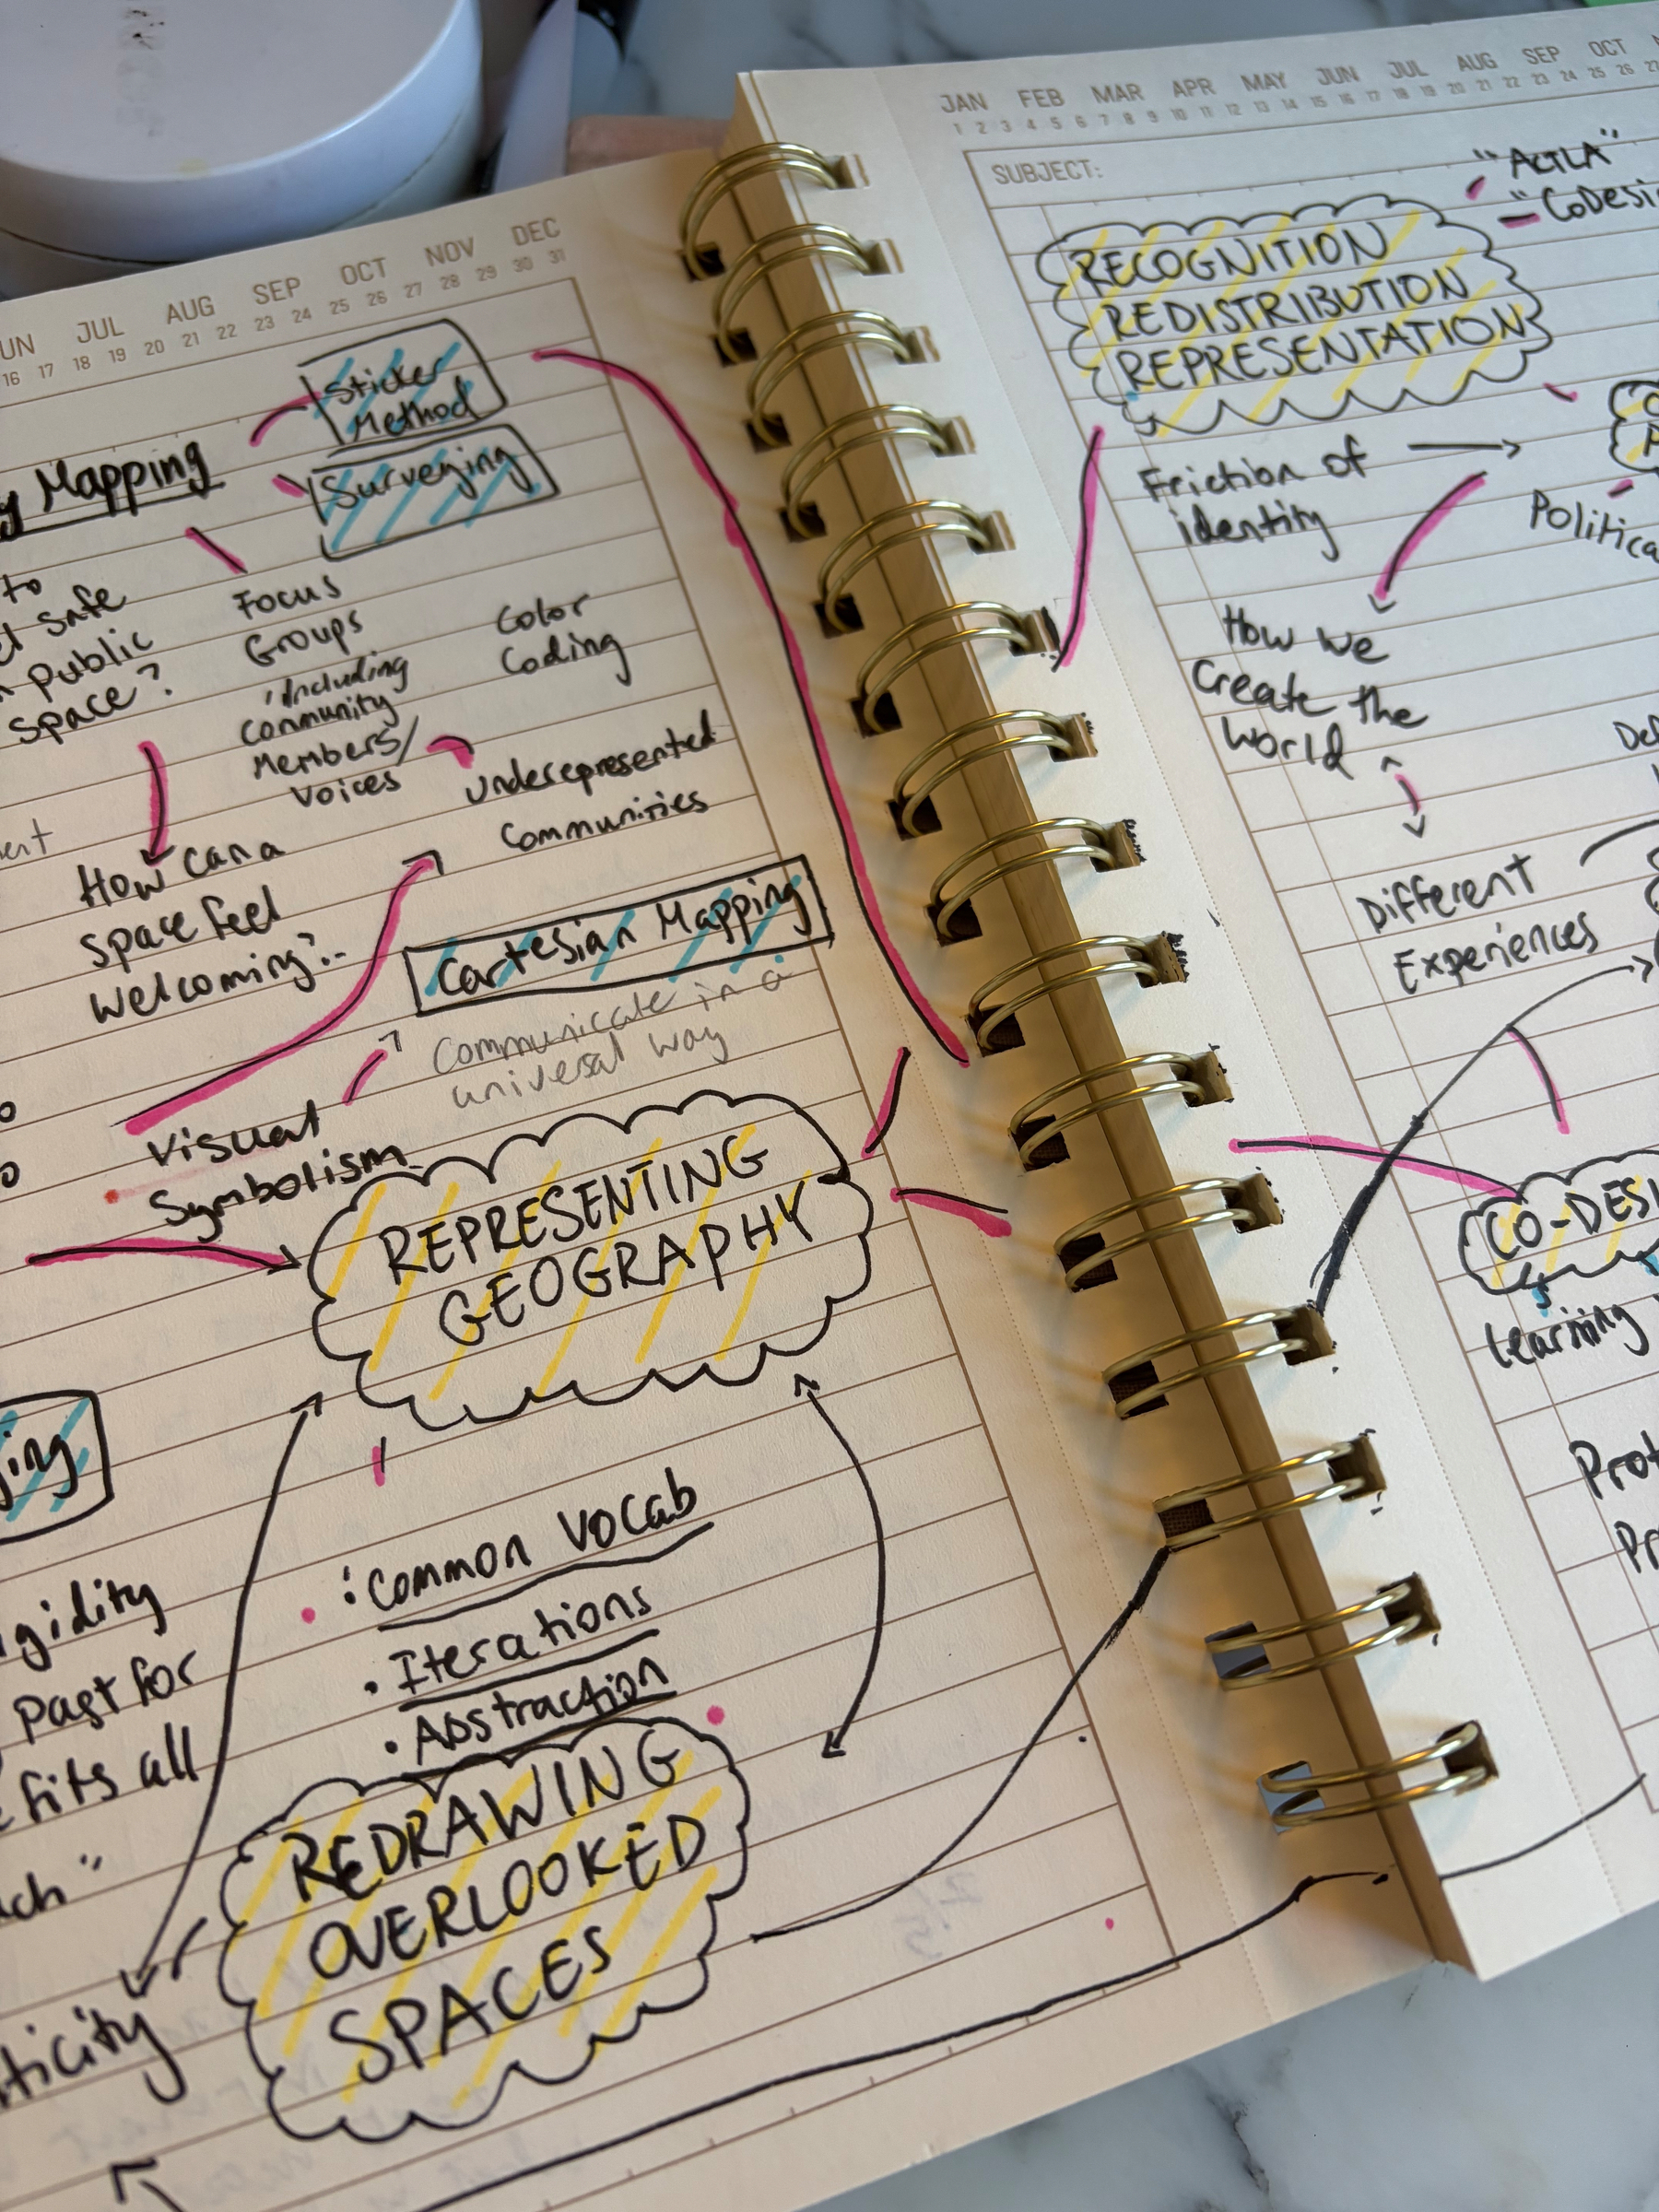 JUL AUG SEP OCT NOV DEC
16 17 18 19 20 21 22 23 24 25 26 27 28 29 30 31
Sticker
Method
Mapping
Surveying
to
safe
public
space?
Focus
Groups
including
community
Members/
Voices
Color
Coding
underepresented
Communities
How can a
space feel
welcoming?
Cartesian Mapping
Communicate in a
universal way
Visual
Symbolism
REPRESENTING
GEOGRAPHY
: Common Vocab
• Iterations
• Abstraction
past for
fits all
REDRAWING
OVERLOOKED
SPACES
JAN FEB MAR APR MAY JUN JUL AUG SEP OCT
1 2 3 4 5 6 7 8 9 10 11 12 13 14 15 16 17 18 19 20 21 22 23 24 25 26
SUBJECT:
"ACTLA"
RECOGNITION
REDISTRIBUTION
REPRESENTATION
Friction of
identity
How we
Create the
World
Different
Experiences
Learning